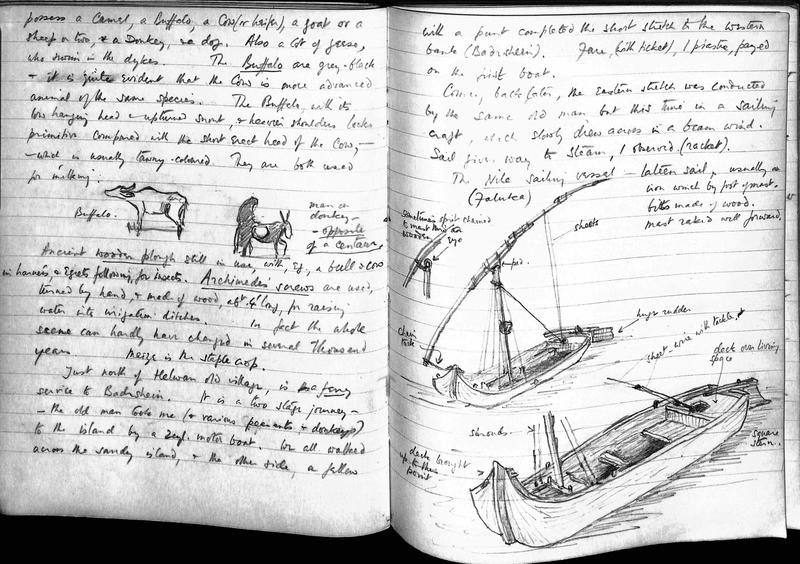 possess a Camel, a Buffalo, a Cow (or heifer), a goat or a
sheep or two, & a Donkey, & a dog. Also a lot of geese,
who swim in the dykes. The Buffalo are grey-black
& it is quite evident that the Cow is more advanced
animal of the same species. The Buffalo, with its
low hanging head & upturned snout, & heavier shoulders looks
primitive compared with the short erect head of the Cow,
- which is usually tawny-coloured. They are both used
for milking.
Buffalo.
man on
donkey -
- opposite
of a centaur
Ancient wooden plough still in use, with, eg, a bull & cow
in harness & Egrets following, for insects. Archimedes screws are used,
turned by hand, & made of wood, abt 4' long, for raising
water into irrigation ditches. In fact the whole
scene can hardly have changed in several thousand
years. Maize is the staple crop.
Just north of Helwan old village, is a ferry
service to Badrshein. It is a two stage journey -
- the old man took me (& various peasants & donkeys)
to the island by a 2cyl. motor boat. We all walked
across the sandy island, & the other side, a fellow
with a punt completed the short stretch to the western
bank (Badrshein). Fare, (with ticket), 1 piastre, payed
on the first boat.
Coming back later, the eastern stretch was conducted
by the same old man but this time in a sailing
craft, which slowly drew across in a beam wind.
Sail gives way to Steam, I observed (racket).
The Nile sailing vessel - lateen sail, usually an
(Falucca)
iron winch by foot of mast.
bitts made of wood.
mast raked well forward.
sometimes sprit chained
to mast thro' an
wooden eye
sheets
ped.
chain
tack
huge rudder
sheet - wire with tackle
deck over living
space
shrouds
deck brought
up to this
point
square
stern.